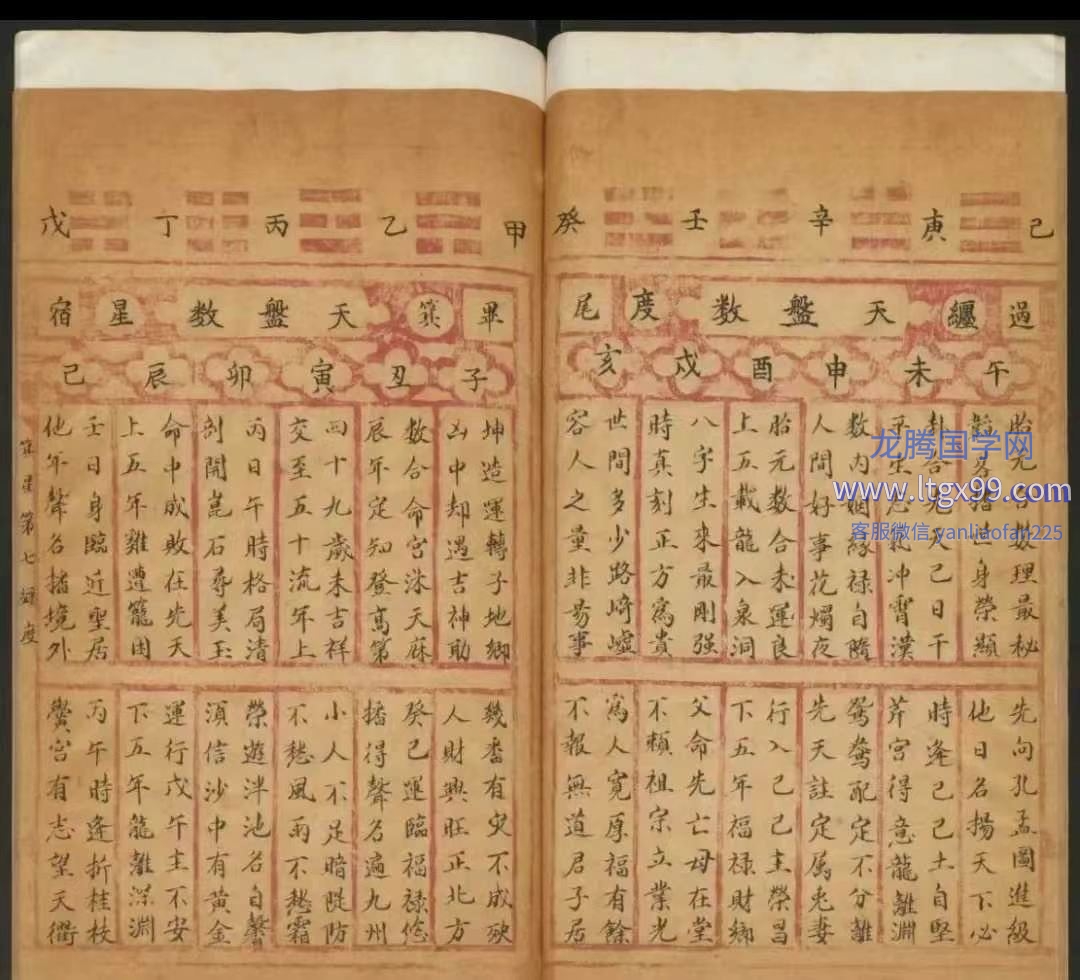 己 庚 辛 壬 癸
過 纏 天盤數 度 尾
午 未 申 酉 戌 亥
胎元合數理最秘
名世身榮顯
卦合先天己日干
平生志氣冲霄漢
數内姻緣禄自隨
人間好事花燭夜
胎元數合未運良
上五載龍入泉洞
八字生來最剛强
時真刻正方爲貴
世間多少路崎嶇
容人之量非易事
先向孔孟圖進級
他日名揚天下必
時逢己己土自堅
芹宮得意龍離淵
鴛鴦配定不分離
先天註定属老妻
行入己己主榮昌
下五年福禄財鄉
父命先亡母在堂
不賴祖宗立業光
爲人寬厚福有餘
不報無道君子居
甲 乙 丙 丁 戊
畢 箕 天盤數 星 宿
子 丑 寅 卯 辰 巳
坤造運轉子地鄉
凶中却遇吉神助
數合命宮洙天麻
辰年定知登高第
四十九歲未吉祥
交至五十流年上
丙日午時格局清
剖開崑石尋美玉
命中成敗任先天
上五年雞遭籠困
壬日身臨近聖居
他年聲名播境外
幾番有灾不成殃
人財興旺正北方
癸己運臨福禄悠
播得聲名遍九州
小人不足暗隄防
不愁風雨不愁霜
榮遊泮池名自馨
須信沙中有黄金
運行戊午主不安
下五年龍離深淵
丙午時逢折桂枝
黌宮有志望天衢
箕星第七 度
龙腾国学网
www.ltgx99.com
客服微信yanliaofan225